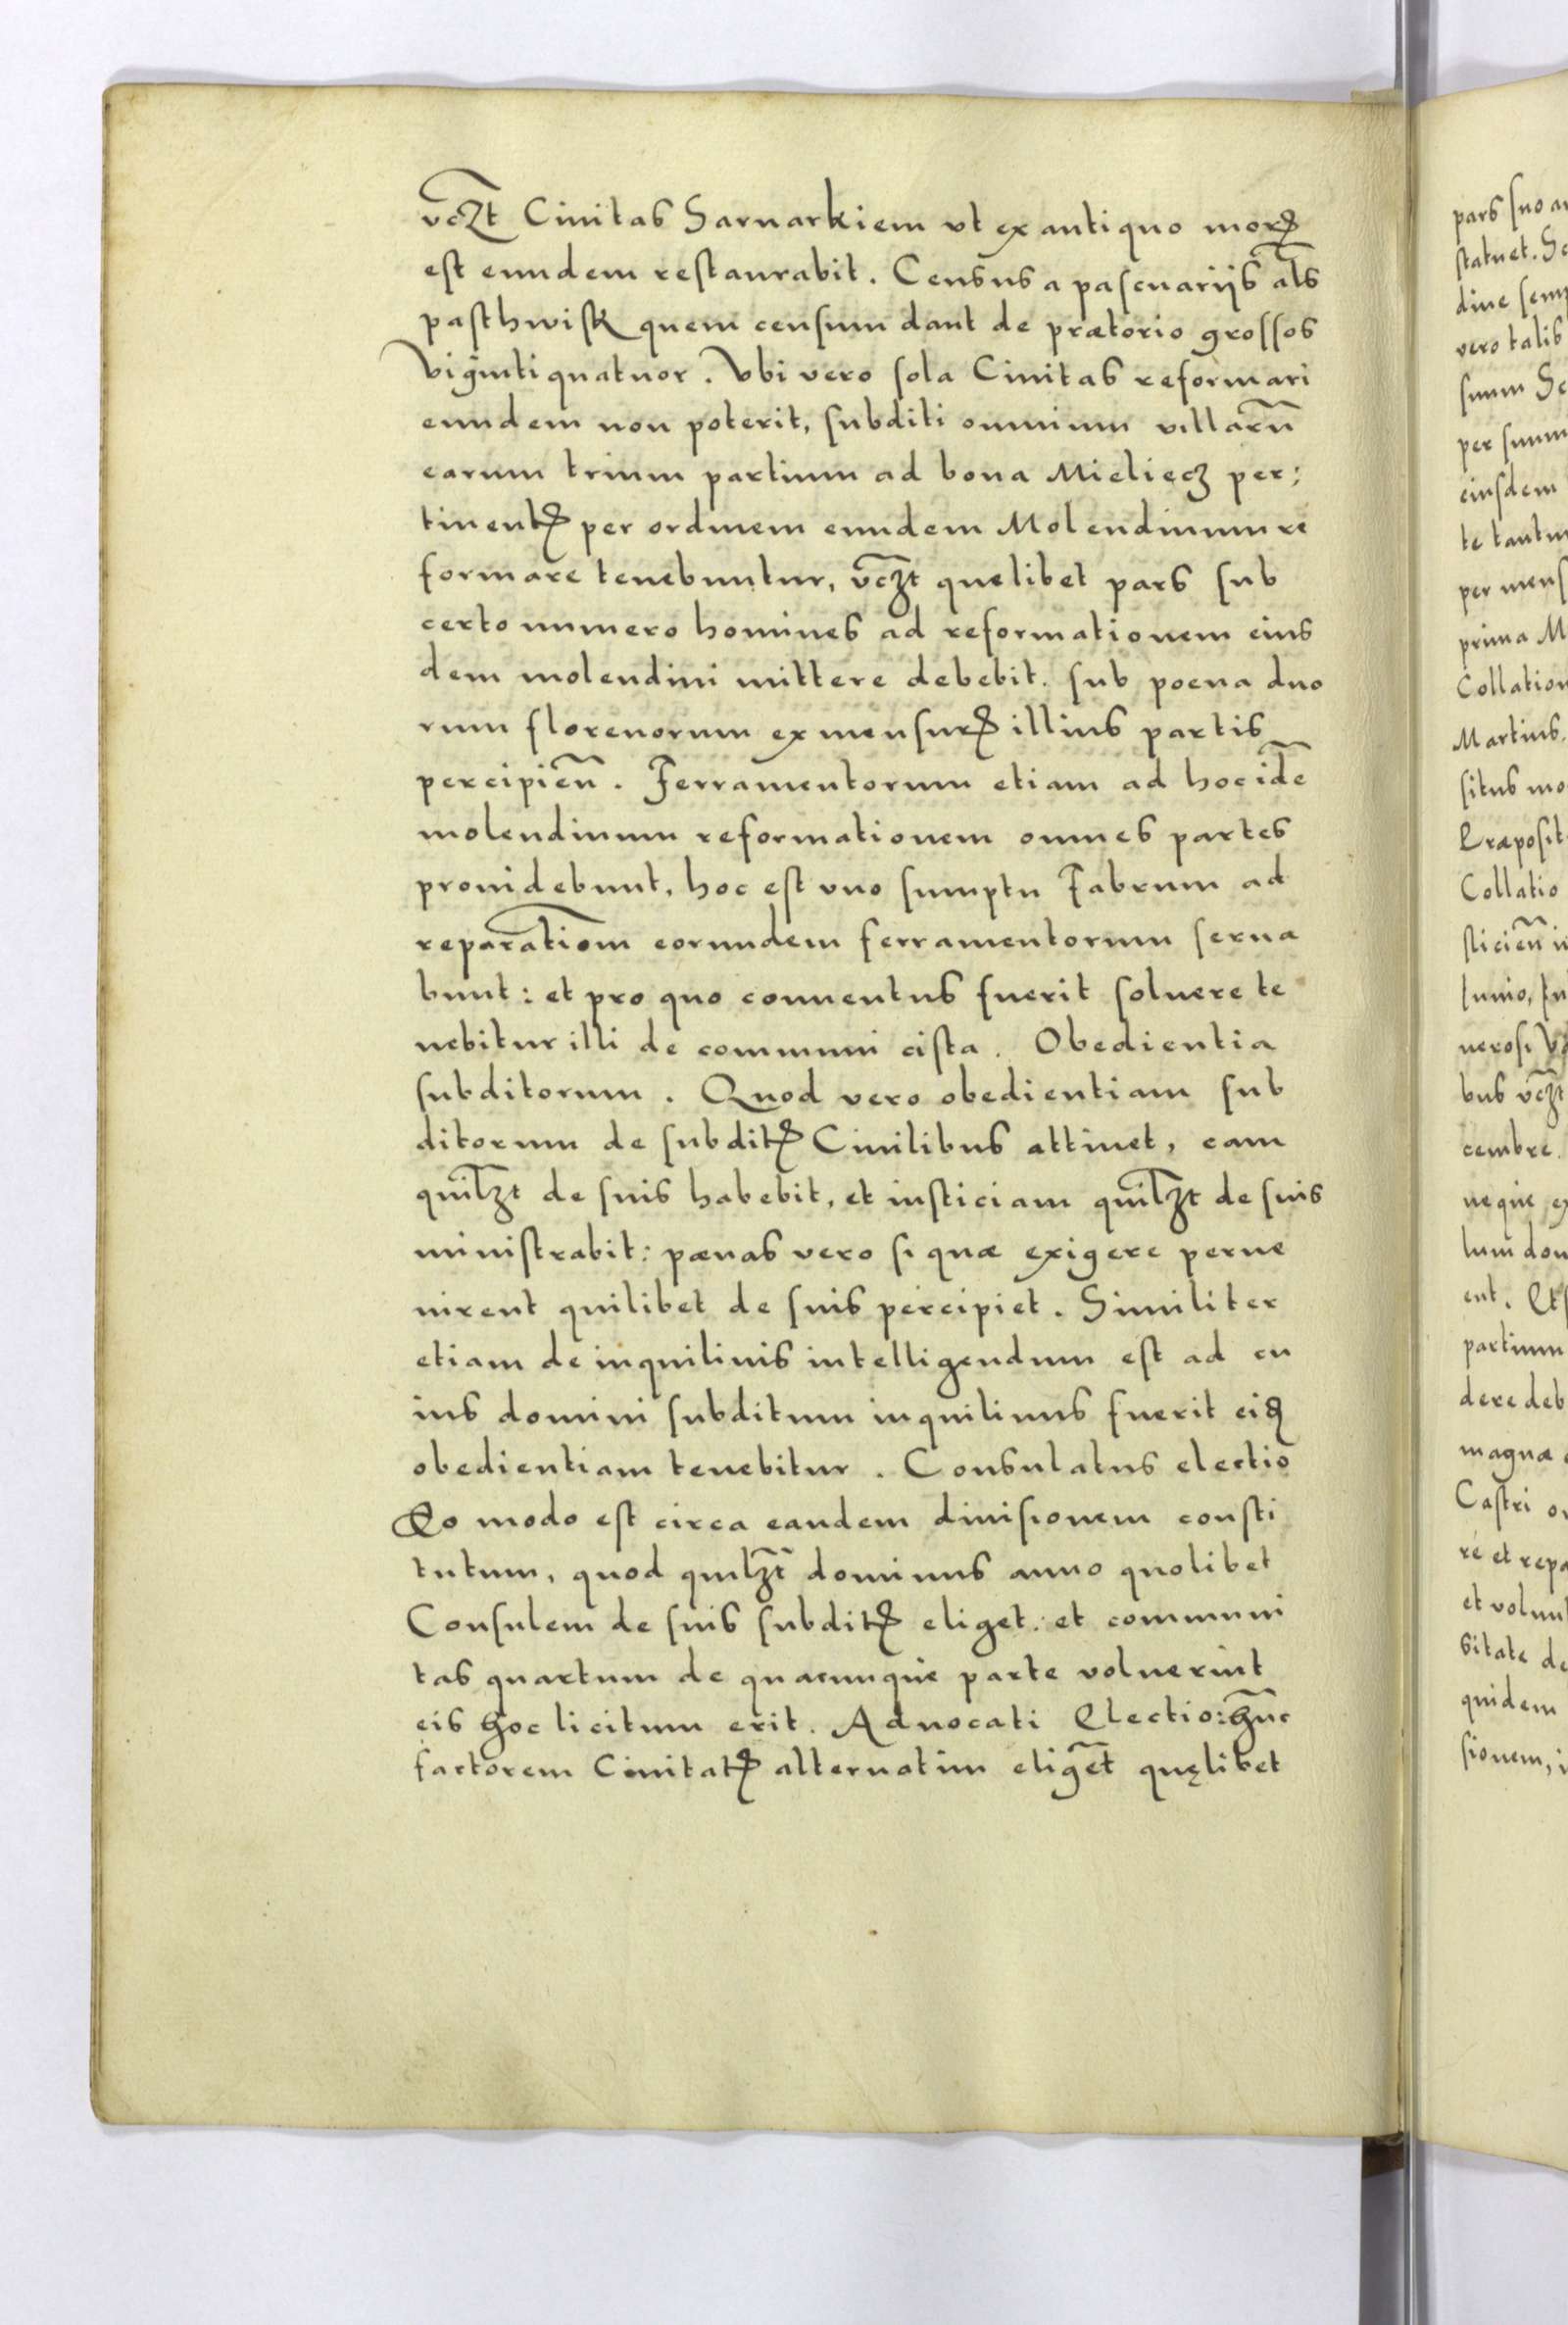 vczt Ciuitas Sarnarkiem vt ex antiquo morꝭ
est eundem restaurabit. Census a pascuariis als̄
pasthwisk quem censum dant de prætorio grossos
viginti quatuor. Vbi vero sola Ciuitas reformari
eundem non poterit, subditi omnium villarū
earum trium partium ad bona Mieliecz per:
tinentꝭ per ordinem eundem Molendinum re
formare tenebuntur, vczt quelibet pars sub
certo numero homines ad reformationem eius
dem molendini mittere debebit. sub poena duo
rum florenorum ex mensurꝭ illius partis
percipien̄. Ferramentorum etiam ad hoc idē
molendinum reformationem omnes partes
prouidebunt, hoc est vno sumptu Fabrum ad
reparatiom̄ eorundem ferramentorum serua
bunt: et pro quo conuentus fuerit soluere te
nebitur illi de communi cista. Obedientia
subditorum. Quod vero obedientiam sub
ditorum de subditꝭ Ciuilibus attinet, eam
quilzt de suis habebit, et iusticiam quilzt de suis
ministrabit: pænas vero si quæ exigere perue
nirent quilibet de suis percipiet. Similiter
etiam de inquilinis intelligendum est ad cu
ius domini subditum inquilinus fuerit eiꝗ
obedientiam tenebitur. Consulatus electio
Eo modo est circa eandem diuisionem consti
tutum, quod quilzt dominus anno quolibet
Consulem de suis subditꝭ eliget: et communi
tas quartum de quacunque parte voluerint
eis hoc licitum erit. Aduocati Electio: hūc
factorem Ciuitatꝭ alternatim eligēt quęlibet